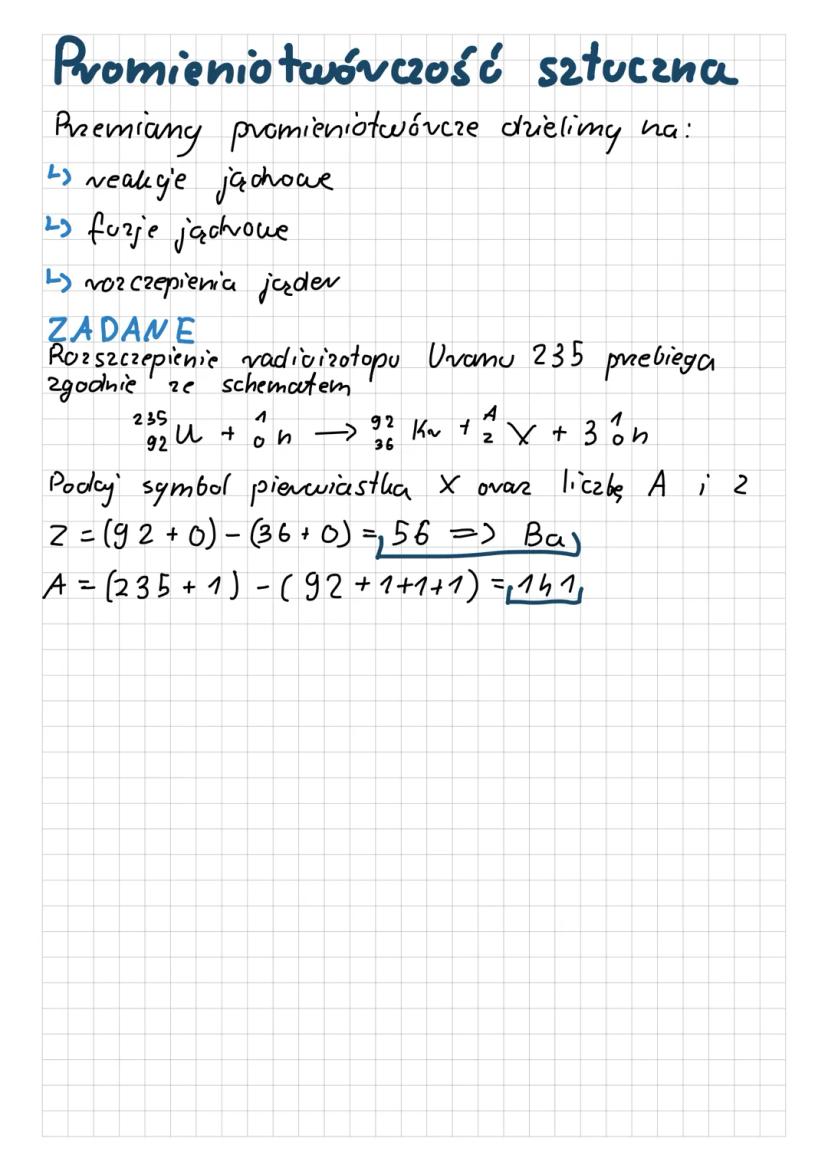 Promieniotwórczość sztuczna
Przemiany promieniotwórcze dzielimy na:
↳ reakcje jądrowe
↳ fuzje jądrowe
↳ rozczepienia jąder
ZADANE
Rozszczepienie radioizotopu Uranu 235 przebiega
zgodnie ze schematem
²³⁵₉₂U + ¹₀n → ⁹²₃₆Kr + ᴬ_Z X + 3 ¹₀n
Podaj symbol pierwiastka X oraz liczbę A i Z
Z = (92 + 0) - (36 + 0) = 56 => Ba
A = (235 + 1) - (92 + 1+1+1) = 141